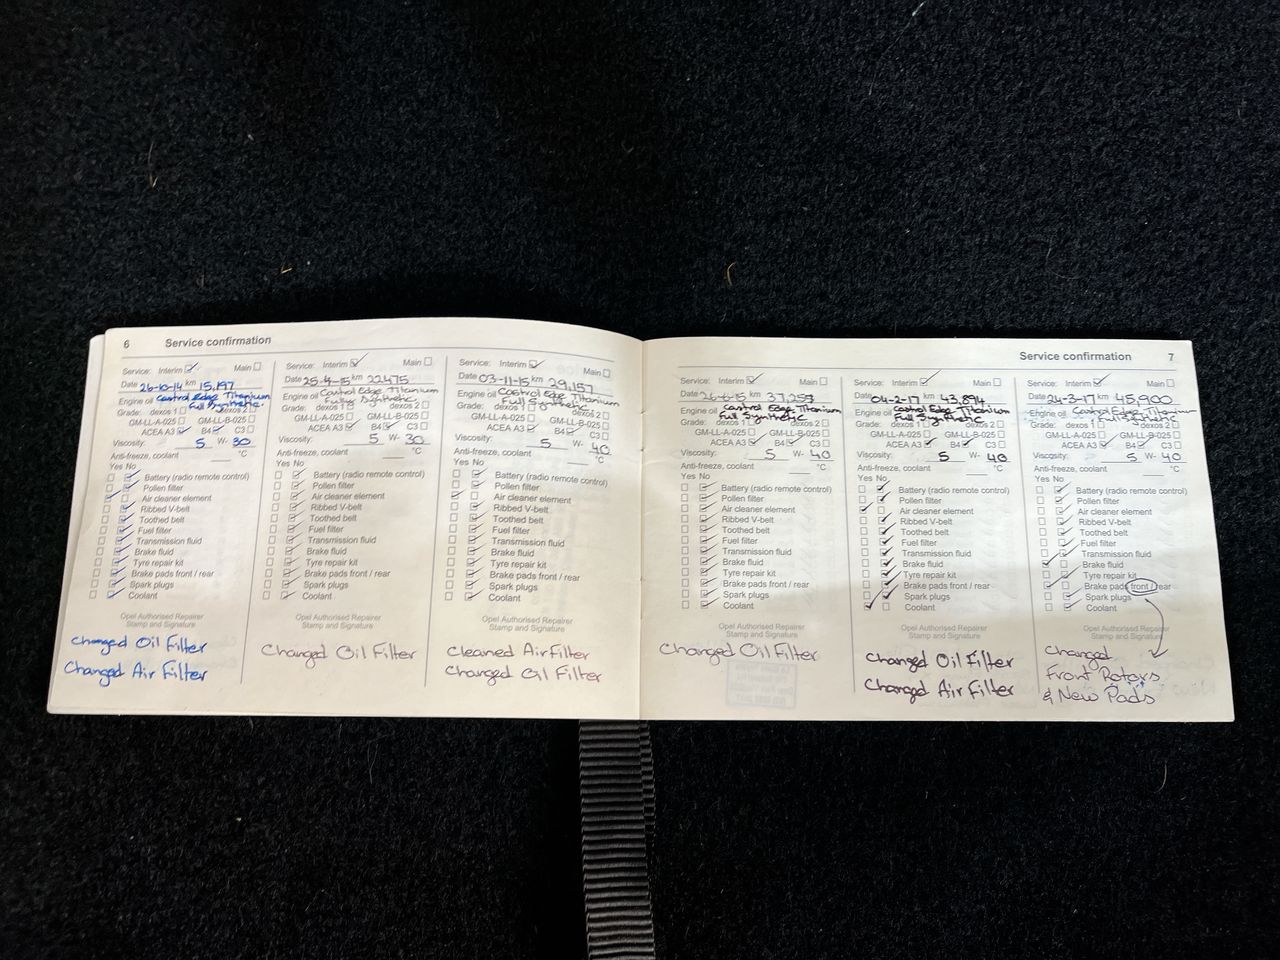 6 Service confirmation
Service: Interim Main
Date 26-10-14 km 15,197
Engine oil Castrol Edge Titanium
Full Synthetic.
Grade: dexos 1 dexos 2
GM-LL-A-025 GM-LL-B-025
ACEA A3 B4 C3
Viscosity: 5 W- 30
Anti-freeze, coolant °C
Yes No
Battery (radio remote control)
Pollen filter
Air cleaner element
Ribbed V-belt
Toothed belt
Fuel filter
Transmission fluid
Brake fluid
Tyre repair kit
Brake pads front / rear
Spark plugs
Coolant
Opel Authorised Repairer
Stamp and Signature
Changed Oil Filter
Changed Air Filter
Service: Interim Main
Date 25-4-15 km 22475
Engine oil Castrol Edge Titanium
Fully Synthetic
Grade: dexos 1 dexos 2
GM-LL-A-025 GM-LL-B-025
ACEA A3 B4 C3
Viscosity: 5 W- 30
Anti-freeze, coolant °C
Yes No
Battery (radio remote control)
Pollen filter
Air cleaner element
Ribbed V-belt
Toothed belt
Fuel filter
Transmission fluid
Brake fluid
Tyre repair kit
Brake pads front / rear
Spark plugs
Coolant
Opel Authorised Repairer
Stamp and Signature
Changed Oil Filter
Service: Interim Main
Date 03-11-15 km 29,157
Engine oil Castrol Edge Titanium
Full Synthetic
Grade: dexos 1 dexos 2
GM-LL-A-025 GM-LL-B-025
ACEA A3 B4 C3
Viscosity: 5 W- 40
Anti-freeze, coolant °C
Yes No
Battery (radio remote control)
Pollen filter
Air cleaner element
Ribbed V-belt
Toothed belt
Fuel filter
Transmission fluid
Brake fluid
Tyre repair kit
Brake pads front / rear
Spark plugs
Coolant
Opel Authorised Repairer
Stamp and Signature
Cleaned Air Filter
Changed Oil Filter
Service confirmation 7
Service: Interim Main
Date 26-6-15 km 37,257
Engine oil Castrol Edge Titanium
Full Synthetic
Grade: dexos 1 dexos 2
GM-LL-A-025 GM-LL-B-025
ACEA A3 B4 C3
Viscosity: 5 W- 40
Anti-freeze, coolant °C
Yes No
Battery (radio remote control)
Pollen filter
Air cleaner element
Ribbed V-belt
Toothed belt
Fuel filter
Transmission fluid
Brake fluid
Tyre repair kit
Brake pads front / rear
Spark plugs
Coolant
Opel Authorised Repairer
Stamp and Signature
Changed Oil Filter
Service: Interim Main
Date 04-2-17 km 43,894
Engine oil Castrol Edge Titanium
Full Synthetic
Grade: dexos 1 dexos 2
GM-LL-A-025 GM-LL-B-025
ACEA A3 B4 C3
Viscosity: 5 W- 40
Anti-freeze, coolant °C
Yes No
Battery (radio remote control)
Pollen filter
Air cleaner element
Ribbed V-belt
Toothed belt
Fuel filter
Transmission fluid
Brake fluid
Tyre repair kit
Brake pads front / rear
Spark plugs
Coolant
Opel Authorised Repairer
Stamp and Signature
Changed Oil Filter
Changed Air Filter
Service: Interim Main
Date 24-3-17 km 45,900
Engine oil Castrol Edge Titanium
Full Synthetic
Grade: dexos 1 dexos 2
GM-LL-A-025 GM-LL-B-025
ACEA A3 B4 C3
Viscosity: 5 W- 40
Anti-freeze, coolant °C
Yes No
Battery (radio remote control)
Pollen filter
Air cleaner element
Ribbed V-belt
Toothed belt
Fuel filter
Transmission fluid
Brake fluid
Tyre repair kit
Brake pads front / rear
Spark plugs
Coolant
Opel Authorised Repairer
Stamp and Signature
Changed
Front Rotors
& New Pads